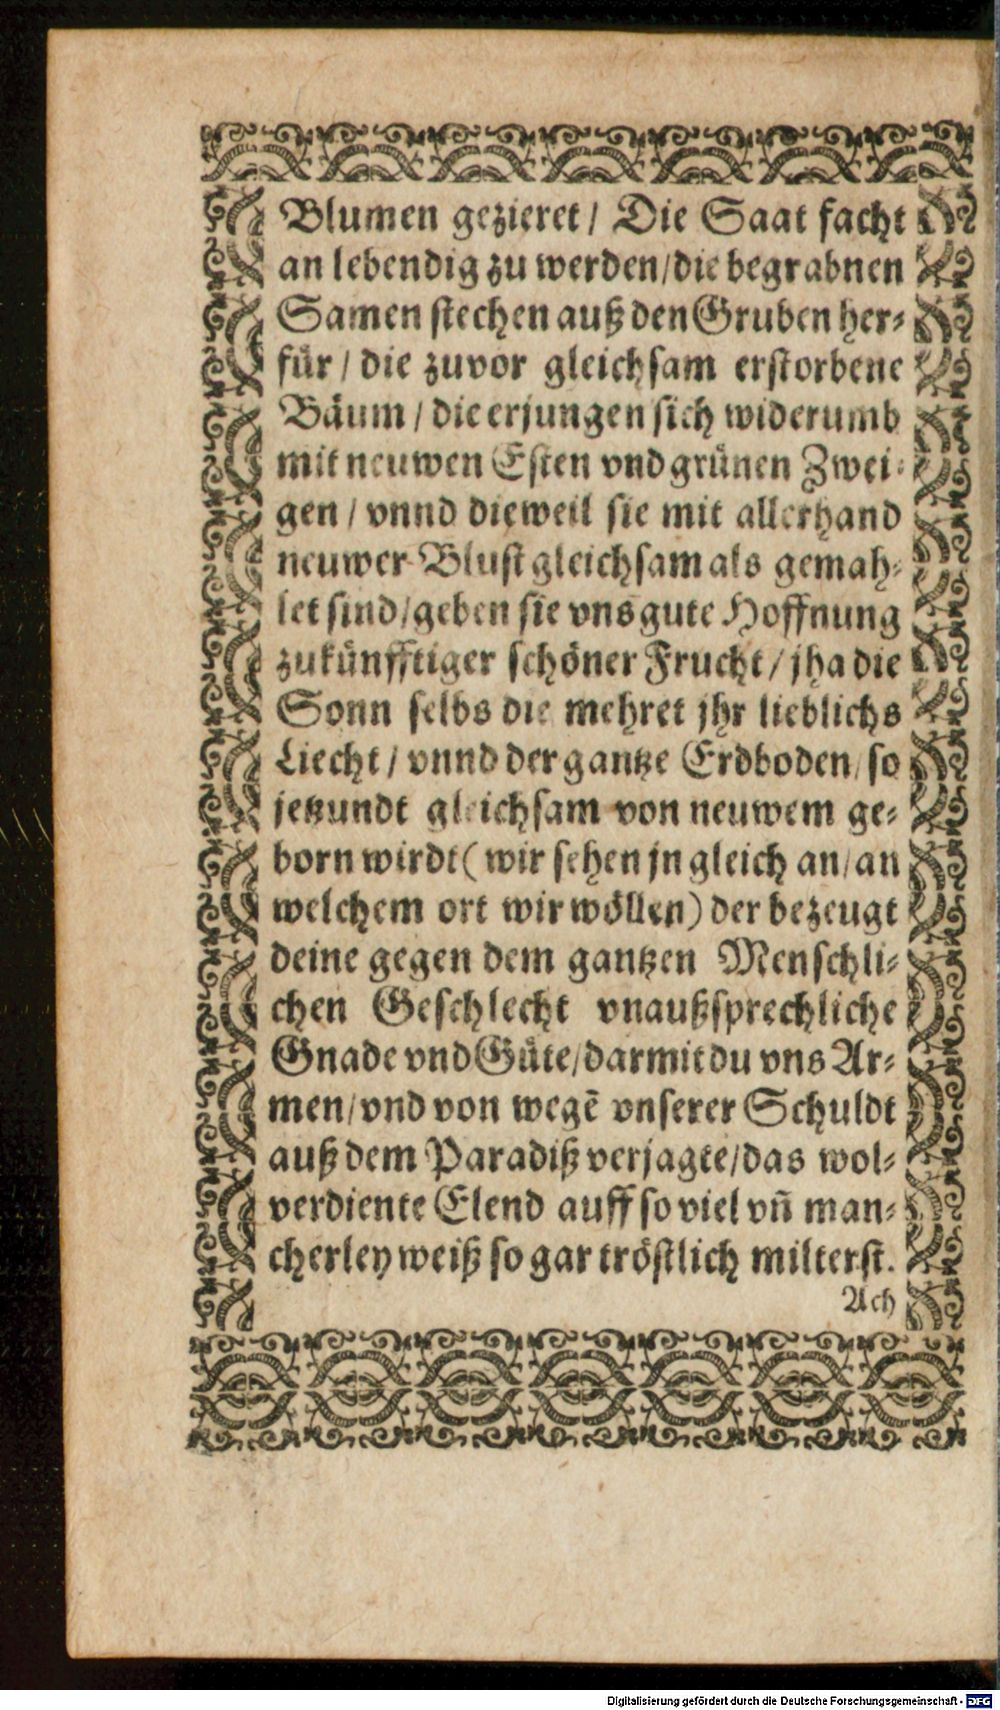 Blumen gezieret / Die Saat facht
an lebendig zu werden / die begrabnen
Samen stechen auß den Gruben her-
für / die zuvor gleichsam erstorbene
Bäum / die erjungen sich widerumb
mit neuwen Esten vnd grünen Zwei-
gen / vnnd dieweil sie mit allerhand
neuwer Blust gleichsam als gemah-
let sind / geben sie vns gute Hoffnung
zukünfftiger schöner Frucht / jha die
Sonn selbs die mehret jhr lieblichs
Liecht / vnnd der gantze Erdboden / so
jetzundt gleichsam von neuwem ge-
born wirdt ( wir sehen jn gleich an / an
welchem ort wir wöllen ) der bezeugt
deine gegen dem gantzen Menschli-
chen Geschlecht vnaußsprechliche
Gnade vnd Güte / darmit du vns Ar-
men / vnd von wegē vnserer Schuldt
auß dem Paradiß verjagte / das wol-
verdiente Elend auff so viel vñ man-
cherley weiß so gar tröstlich milterst.
Ach
Digitalisierung gefördert durch die Deutsche Forschungsgemeinschaft - DFG